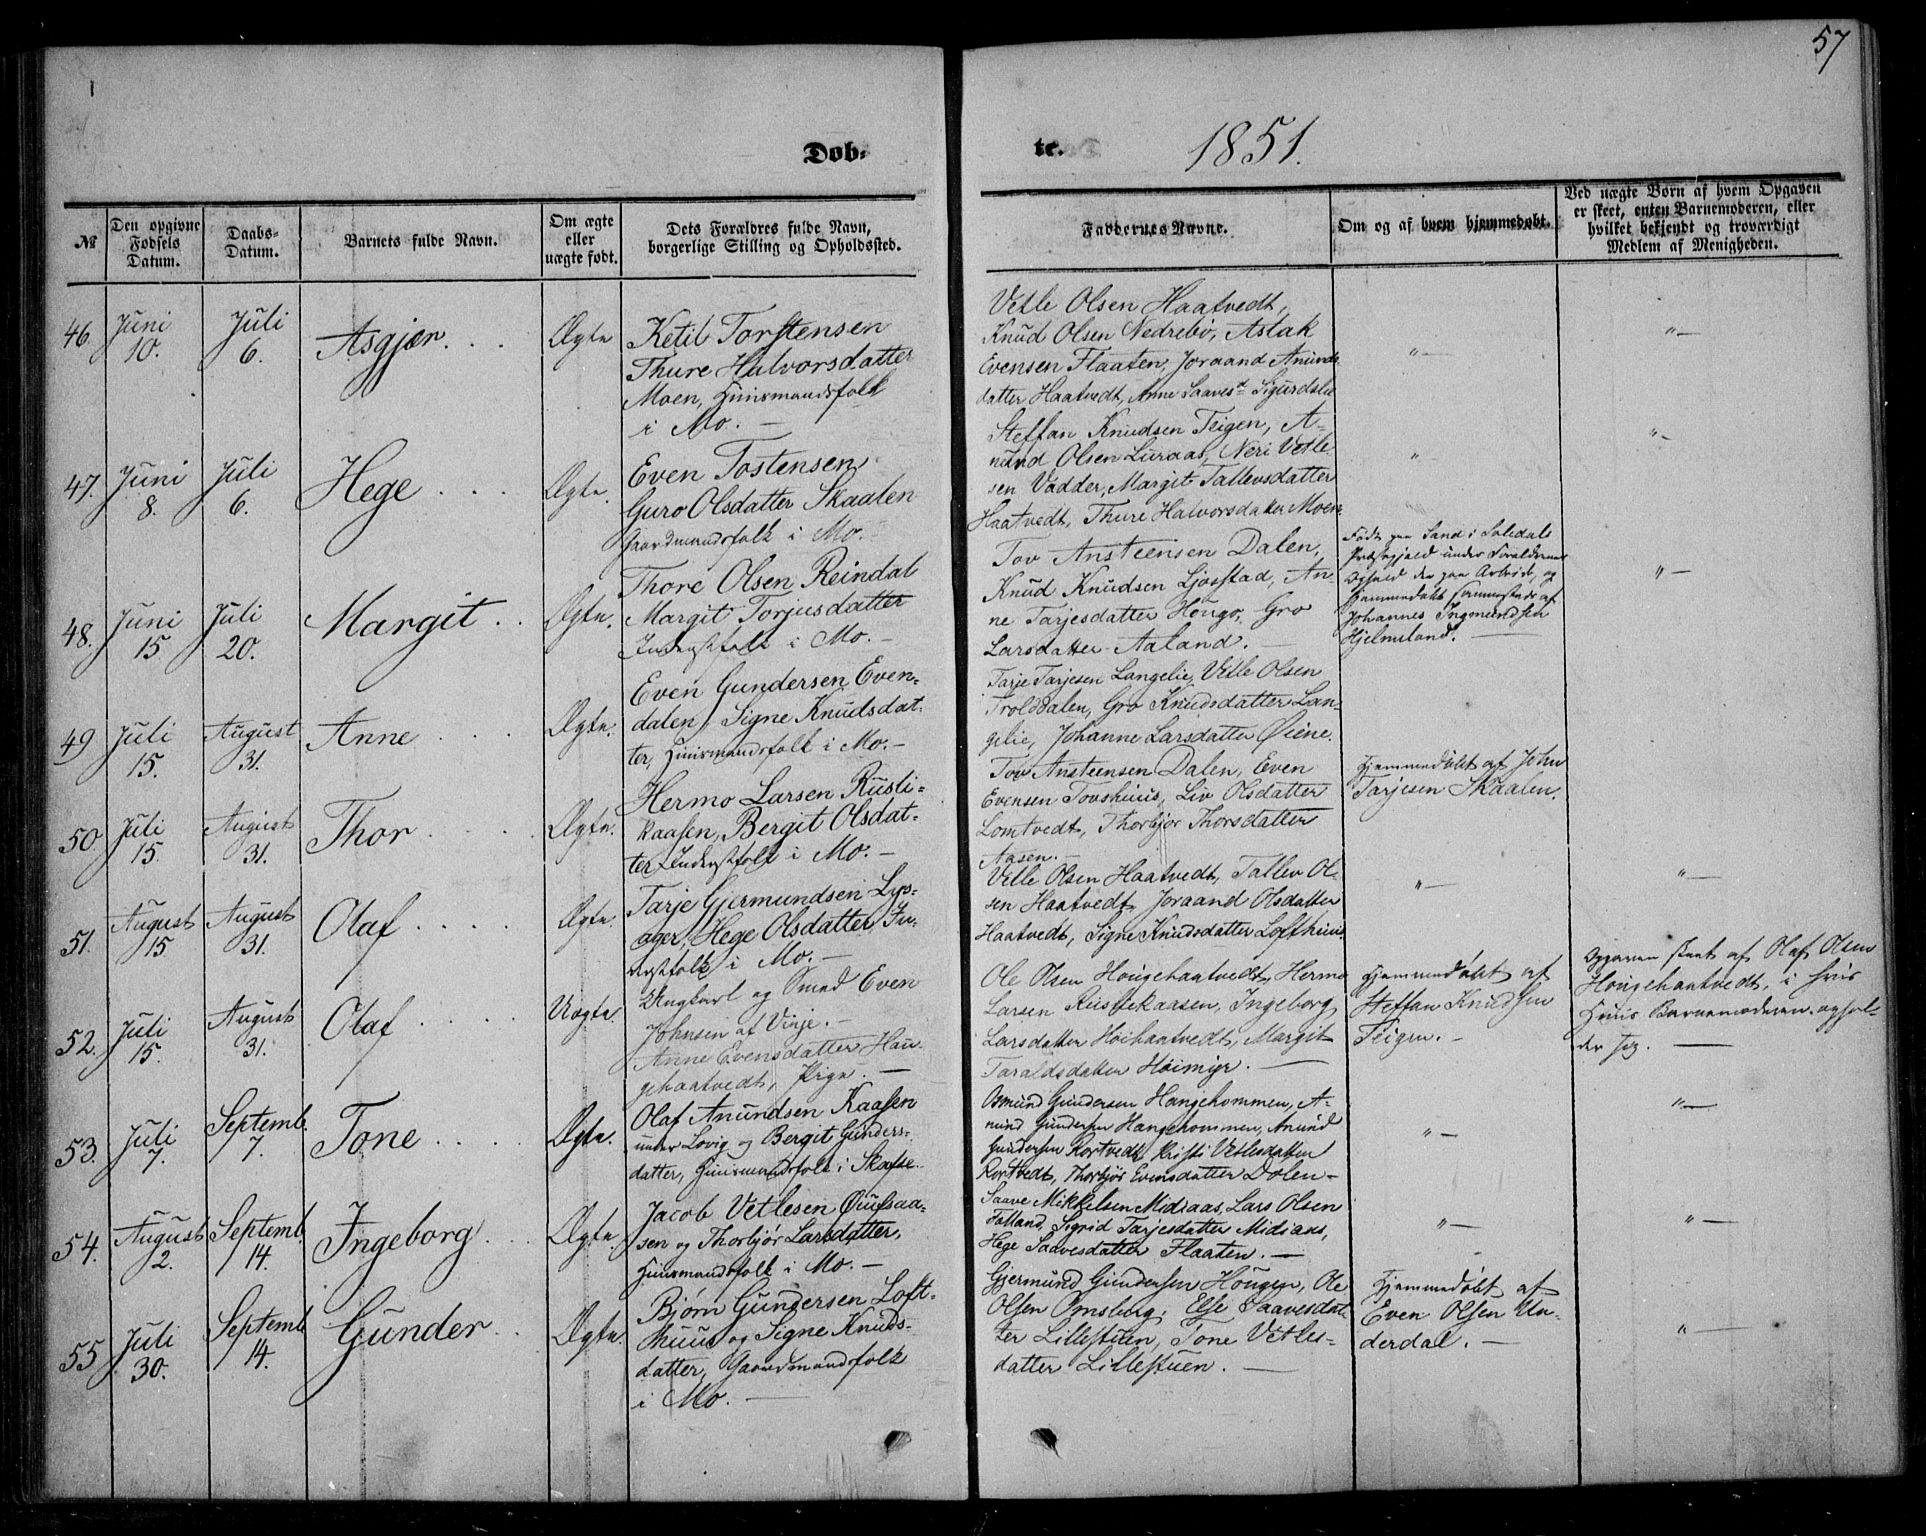 57
Døb-
te. 1851.
№
Den opgivne
Fødsels
Datum.
Daabs-
Datum.
Barnets fulde Navn.
Om ægte
eller
uægte født.
Dets Forældres fulde Navn,
borgerlige Stilling og Opholdssted.
Faddernes Navne.
Om og af hvem hjemmedøbt.
Ved uægte Børn af hvem Opgaven
er skeet, enten Barnemoderen, eller
hvilket bekjendt og troværdigt
Medlem af Menigheden.
46. Juni 10. Juli 6. Asgjær. Ægte
Ketil Torstensen
Thure Halvorsdatter
Moen, Huusmandsfolk
i Mo. —
Vetle Olsen Haatvedt,
Knud Olsen Nedrebø, Aslak
Evensen Flaaten, Joraand Anunds-
datter Haatvedt, Anne Saavesd. Sigurdslie
"—
"—
47. Juni 8. Juli 6. Hege Ægte.
Even Tostensen
Guro Olsdatter Skaalen
Gaardmandsfolk i Mo.
Steffan Knudsen Teigen, A-
nund Olsen Luraas, Neri Vetle-
sen Vadder, Margit Tallevsdatter
Haatvedt, Thure Halvorsdatter Moen.
"—
"—
48. Juni 15. Juli 20. Margit Ægte.
Thore Olsen Reindal
Margit Torjusdatter
Inderstfolk i Mo. —
Tov Ansteensen Dalen,
Knud Knudsen Ljosstad, An-
ne Tarjesdatter Hougo, Gro
Larsdatter Aaland. —
Født paa Sand i Suledals
Præstegjeld under Forældrenes
Ophold der paa Arbeide, og
hjemmedøbt sammesteds af
Johannes Ingemundsen
Hjelmeland. —
"—
49 Juli 15. August 31. Anne Ægte.
Even Gundersen Even-
dalen, Signe Knudsdat-
ter, Huusmandsfolk i Mo. —
Tarje Tarjesen Langelie, Vetle Olsen
Trolddalen, Gro Knudsdatter Lan-
gelie, Johanne Larsdatter Øiene.
50. Juli 15. August 31. Thor Ægte.
Hermo Larsen Rusti-
kaasen, Bergit Olsdat-
ter Inderstfolk i Mo. —
Tov Ansteensen Dalen, Even
Evensen Tovshuus, Liv Olsdatter
Lomtvedt, Thorbjør Thorsdatter
Aasen. —
Hjemmedøbt af John
Tarjesen Skaalen.
51. August 15 August 31. Olaf Ægte.
Tarje Gjermundsen Lys-
ager, Hege Olsdatter In-
derstfolk i Mo. —
Vetle Olsen Haatvedt, Tallev Ol-
sen Haatvedt, Joraand Olsdatter
Haatvedt, Signe Knudsdatter Lofthuus.
"—
"—
52. Juli 15. August 31. Olaf Uægte.
Ungkarl og Smed Even
Johnsen af Vinje. —
Anne Evensdatter Hau-
gehaatvedt, Pige. —
Ole Olsen Hougehaatvedt, Hermo
Larsen Rustikaasen, Ingeborg
Larsdatter Høihaatvedt, Margit
Taraldsdatter Høimyr. —
Hjemmedøbt af
Steffan Knudsen
Teigen. —
Opgaven skeet af Olaf Olsen
Hougehaatvedt, i hvis
Huus Barnemoderen ophol-
der sig. —
53. Juli 7. Septemb. 7. Tone Ægte.
Olaf Anundsen Kaasen
under Lovig og Bergit Gunders-
datter, Huusmandsfolk i Skafse.
Osmund Gundersen Haugehommen, A-
nund Gundersen Haugehommen, Anund
Gundersen Rortvedt, Kristi Vetlesdatter
Rortvedt, Thorbjør Evensdatter Dolen —
"—
"—
54. August 2. Septemb. 14. Ingeborg Ægte.
Jacob Vetlesen Øiufsaa-
sen og Thorbjør Larsdatter,
Huusmandsfolk i Mo. —
Saave Mikkelsen Midiaas, Lars Olsen
Talland, Sigrid Tarjesdatter Midiaas,
Hege Saavesdatter Flaaten. —
"—
"—
55 Juli 30. Septemb. 14. Gunder Ægte.
Bjørn Gundersen Loft-
huus og Signe Knuds-
datter, Gaardmandsfolk
i Mo. —
Gjermund Gundersen Hougen, Ole
Olsen Ornsberg, Else Saavesdat-
ter Lillestuen, Tone Vetles-
datter Lillestuen. —
Hjemmedøbt af
Even Olsen Un-
derdal. —
"—